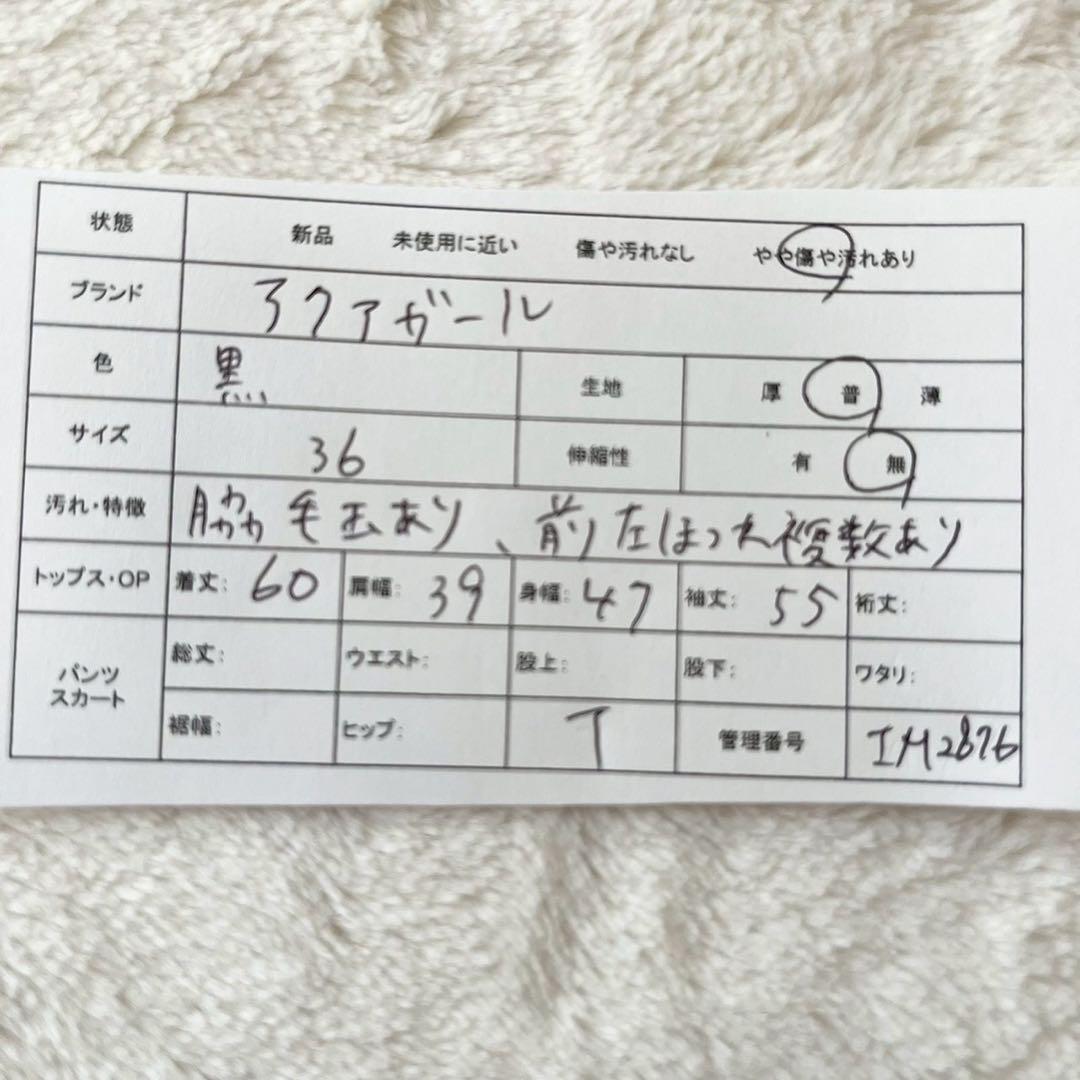 状態 新品 未使用に近い 傷や汚れなし やや傷や汚れあり
ブランド アクアガール
色 黒 生地 厚 普 薄
サイズ 36 伸縮性 有 無
汚れ・特徴 脇毛玉あり、前左ほつれ複数あり
トップス・OP 着丈: 60 肩幅: 39 身幅: 47 袖丈: 55 裄丈:
パンツ
スカート
総丈: ウエスト: 股上: 股下: ワタリ:
裾幅: ヒップ: T 管理番号 IM2876